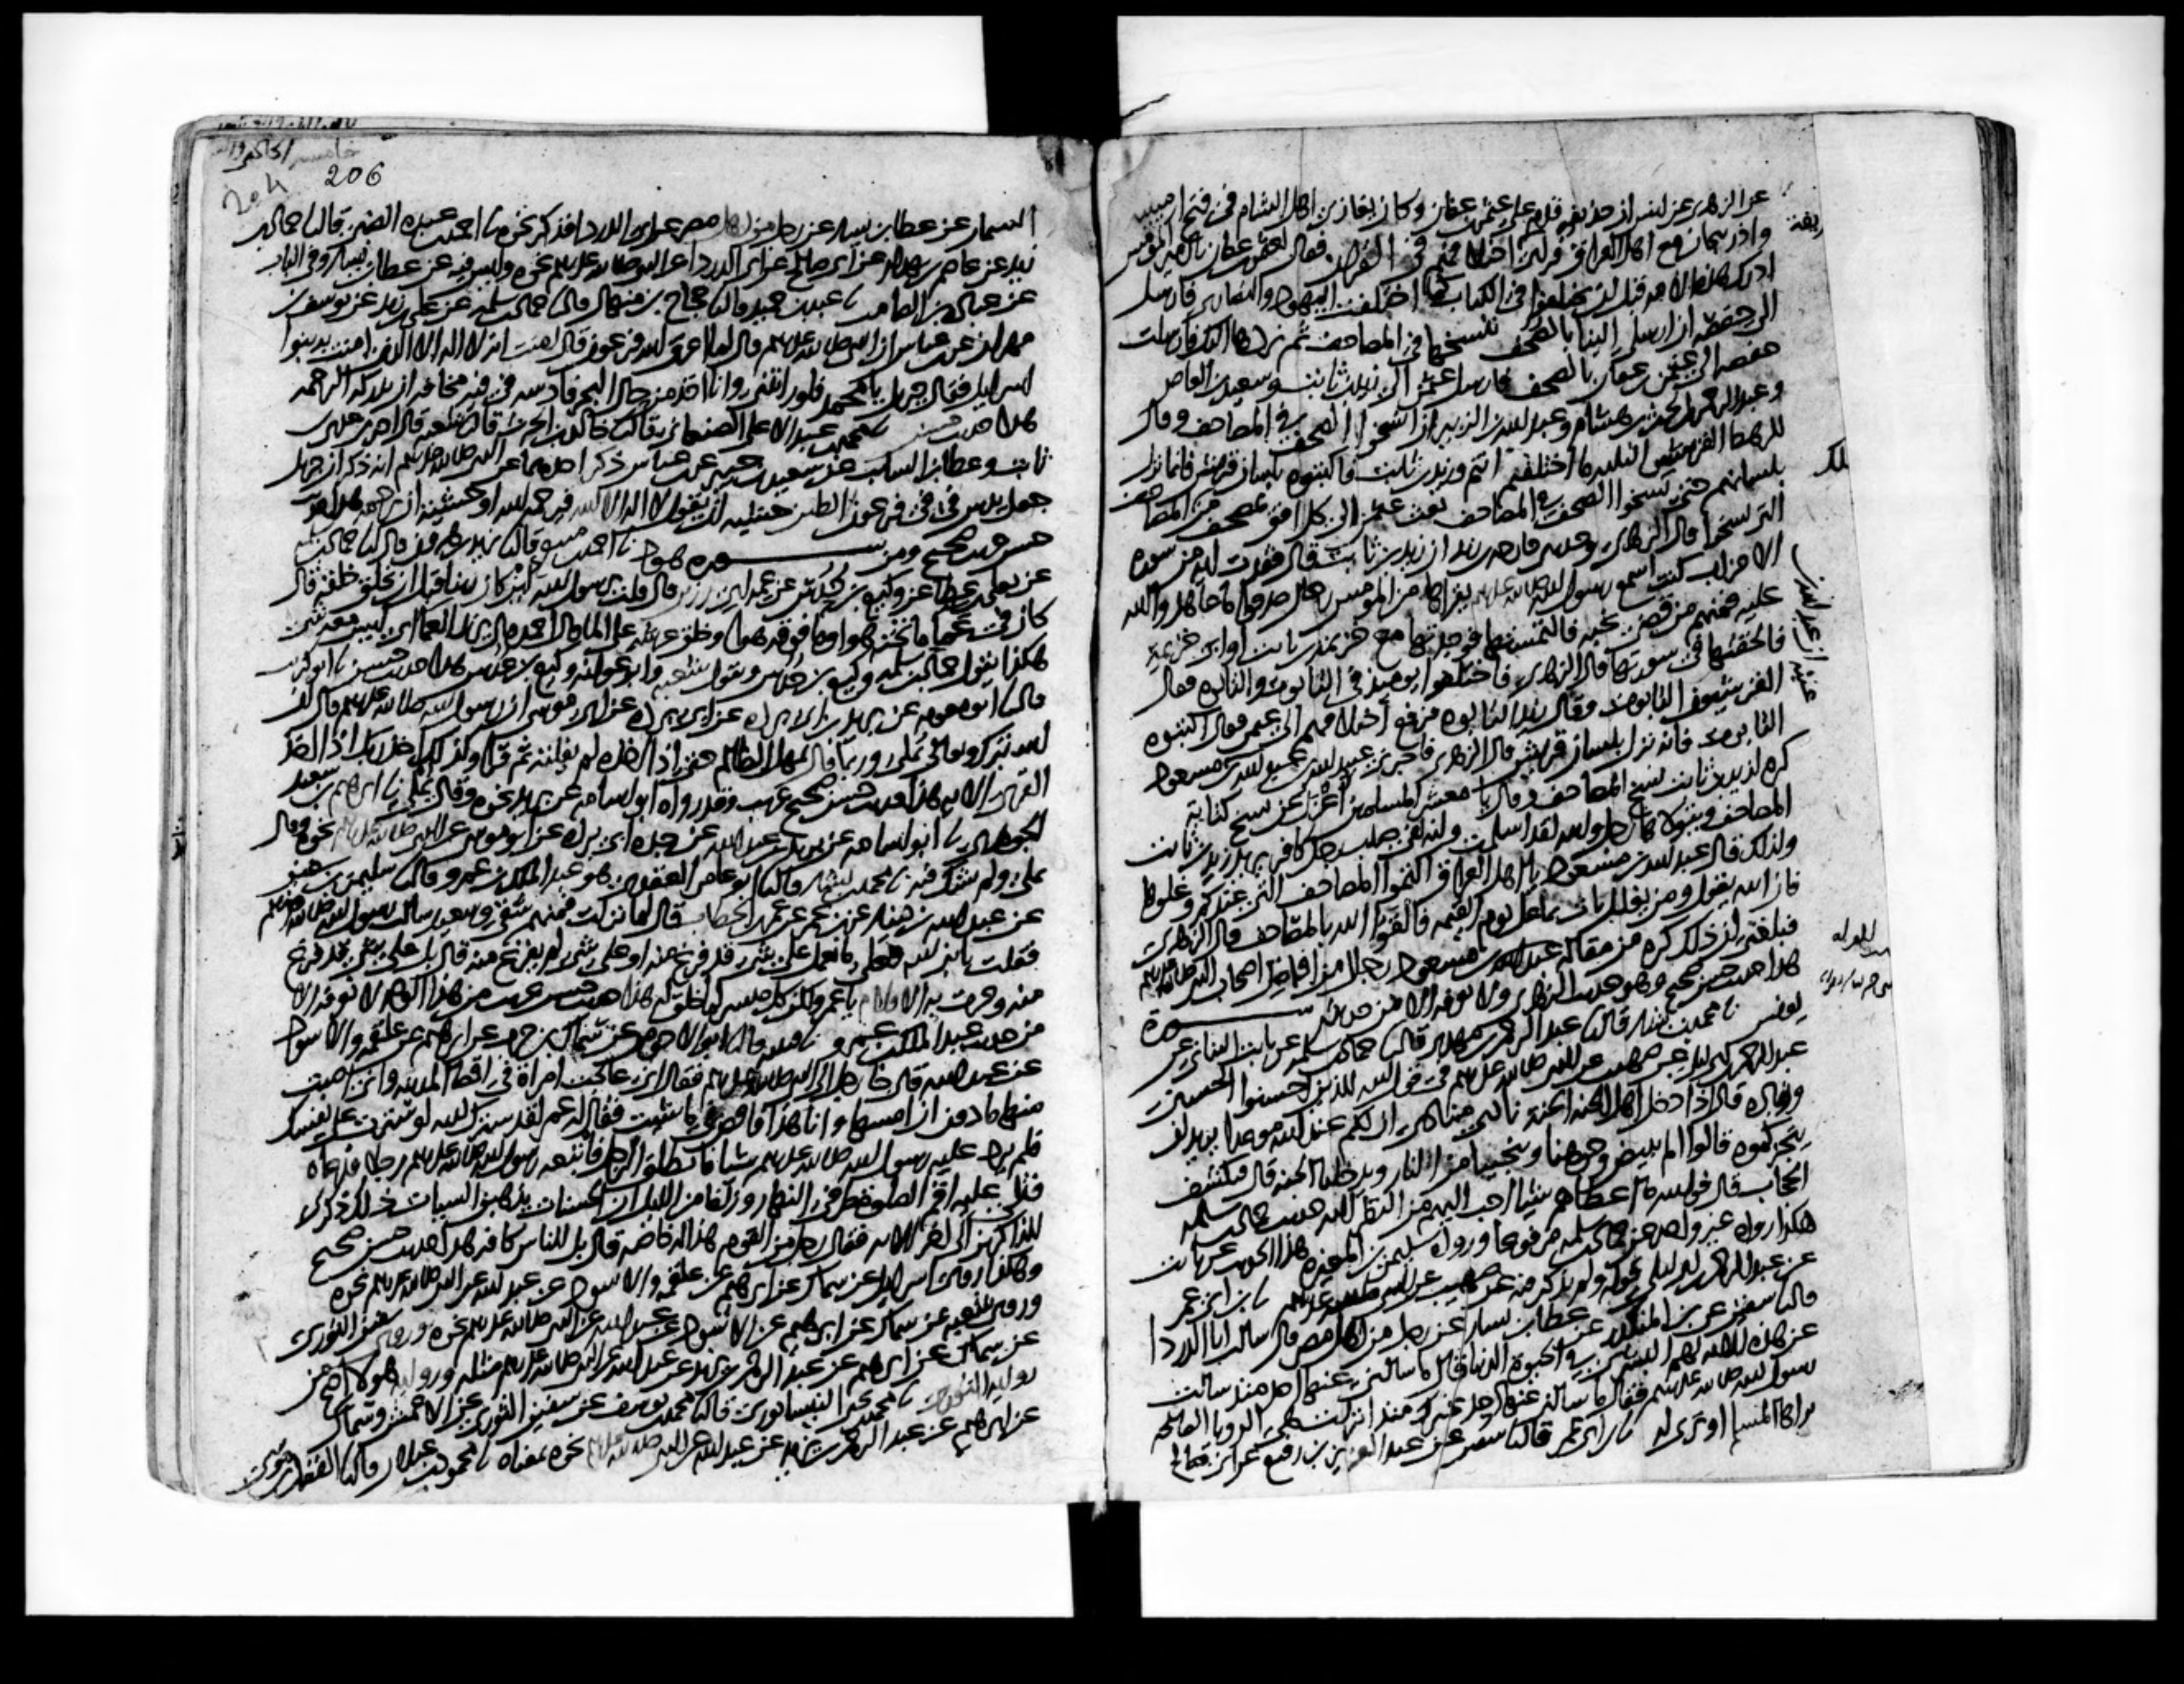 عن الزهري عن انس ان حذيفه قدم على عثمن بن عفان وكان يغازي اهل الشام في فتح ارمينيه
واذربيجان مع اهل العراق فراى حذيفه اختلافهم في القران فقال لعثمن بن عفان يا امير المومنين
ادرك هذه الامه قبل ان يختلفوا في الكتاب كما اختلفت اليهود والنصارى فارسل
الى حفصه ان ارسلي الينا بالصحف ننسخها في المصاحف ثم نردها اليك فارسلت
حفصه الى عثمن بن عفان بالصحف فارسل عثمن الى زيد بن ثابت وسعيد بن العاص
وعبد الرحمن بن الحرث بن هشام وعبد الله بن الزبير ان انسخوا الصحف في المصاحف وقال
للرهط القرشيين الثلثه ما اختلفتم انتم وزيد بن ثابت فاكتبوه بلسان قريش فانما نزل
بلسانهم حتى نسخوا الصحف في المصاحف بعث عثمن الى كل افق بمصحف من المصاحف
التي نسخوا قال الزهري وحدثني خارجه بن زيد ان زيد بن ثابت قال فقدت ايه من سوره
الاحزاب كنت اسمع رسول الله صلى الله عليه وسلم يقراها من المومنين رجال صدقوا ما عاهدوا الله
عليه فمنهم من قضى نحبه فالتمستها فوجدتها مع خزيمه بن ثابت او ابي خزيمه
فالحقتها في سورتها قال الزهري فاختلفوا يوميذ في التابوت والتابوه فقال
القرشيون التابوت وقال زيد التابوه فرفع اختلافهم الى عثمن فقال اكتبوه
التابوت فانه نزل بلسان قريش قال الزهري فاخبرني عبيد الله بن عبد الله ان عبد الله بن مسعود
كره لزيد بن ثابت نسخ المصاحف وقال يا معشر المسلمين اعزل عن نسخ كتابه
المصاحف ويتولاها رجل والله لقد اسلمت وانه لفي صلب رجل كافر يريد زيد بن ثابت
ولذلك قال عبد الله بن مسعود يا اهل العراق اكتموا المصاحف التي عندكم وغلوها
فان الله يقول ومن يغلل يات بما غل يوم القيمه فالقوا الله بالمصاحف قال الزهري
فبلغني ان ذلك كره من مقاله عبد الله بن مسعود رجال من افاضل اصحاب النبي صلى الله عليه وسلم
هذا حديث حسن صحيح وهو حديث الزهري ولا نعرفه الا من حديثه سوره
يونس نا محمد بن بشار قال نا عبد الرحمن بن مهدي قال نا حماد بن سلمه عن ثابت البناني عن
عبد الرحمن بن ابي ليلى عن صهيب عن النبي صلى الله عليه وسلم في قول الله للذين احسنوا الحسنى
وزياده قال اذا دخل اهل الجنه الجنه نادى مناد ان لكم عند الله موعدا يريد ان
ينجزكموه قالوا الم يبيض وجوهنا وينجينا من النار ويدخلنا الجنه قال فيكشف
الحجاب قال فوالله ما اعطاهم شيئا احب اليهم من النظر اليه حديث حماد بن سلمه
هكذا رواه غير واحد عن حماد بن سلمه مرفوعا وروى سليمن بن المغيره هذا الحديث عن ثابت
عن عبد الرحمن بن ابي ليلى قوله ولم يذكر فيه عن صهيب عن النبي صلى الله عليه وسلم نا ابن ابي عمر
قال نا سفين عن ابن المنكدر عن عطا بن يسار عن رجل من اهل مصر قال سالت ابا الدردا
عن هذه الايه لهم البشرى في الحيوه الدنيا قال ما سالني عنها احد منذ سالت
رسول الله صلى الله عليه وسلم فقال ما سالني عنها احد غيرك منذ انزلت هي الرويا الصالحه
يراها المسلم او ترى له نا ابن ابي عمر قال نا سفين عن عبد العزيز بن رفيع عن ابي صالح
206
السمان عن عطا بن يسار عن رجل من اهل مصر عن ابي الدردا فذكر نحوه نا احمد بن عبده الضبي قال نا حماد بن
زيد عن عاصم بن بهدله عن ابي صالح عن ابي الدردا عن النبي صلى الله عليه وسلم نحوه وليس فيه عن عطا بن يسار وفي الباب
عن عباده بن الصامت نا عبد بن حميد قال نا حجاج بن منهال قال نا حماد بن سلمه عن علي بن زيد عن يوسف بن
مهران عن ابن عباس ان النبي صلى الله عليه وسلم قال لما اغرق الله فرعون قال امنت انه لا اله الا الذي امنت به بنوا
اسرايل فقال جبريل يا محمد فلو رايتني وانا اخذ من حال البحر فادسه في فيه مخافه ان تدركه الرحمه
هذا حديث حسن نا محمد بن عبد الاعلى الصنعاني قال نا خالد بن الحرث قال نا شعبه قال اخبرني عدي بن
ثابت وعطا بن السايب عن سعيد بن جبير عن ابن عباس ذكر احدهما عن النبي صلى الله عليه وسلم انه ذكر ان جبريل
جعل يدس في في فرعون الطين خشيه ان يقول لا اله الا الله فيرحمه الله او خشيه ان يرحمه هذا حديث
حسن غريب صحيح ومن سوره هود نا احمد بن منيع قال نا يزيد بن هرون قال نا حماد بن سلمه
عن يعلى بن عطا عن وكيع بن حدس عن عمه ابي رزين قال قلت يرسول الله اين كان ربنا قبل ان يخلق خلقه قال
كان في عما ما تحته هوا وما فوقه هوا وخلق عرشه على الما قال احمد قال يزيد العما اي ليس معه شي
هكذا يقول حماد بن سلمه وكيع بن حدس ويقول شعبه وابو عوانه وكيع بن عدس هذا حديث حسن نا ابو كريب
قال نا ابو معويه عن بريد بن ابي برده عن ابي برده عن ابي موسى ان رسول الله صلى الله عليه وسلم قال ان
الله تبارك وتعالى يملي وربما قال يمهل الظالم حتى اذا اخذه لم يفلته ثم قرا وكذلك اخذ ربك اذا اخذ
القرى الايه هذا حديث حسن صحيح غريب وقد رواه ابو اسامه عن بريد نحوه وقال يملي نا ابرهيم بن سعيد
الجوهري نا ابو اسامه عن بريد بن عبد الله عن جده ابي برده عن ابي موسى عن النبي صلى الله عليه وسلم نحوه وقال
يملي ولم يشك فيه نا محمد بن بشار قال نا ابو عامر العقدي هو عبد الملك بن عمرو قال نا سليمن بن سفين
عن عبد الله بن دينار عن ابن عمر عن عمر بن الخطاب قال لما نزلت فمنهم شقي وسعيد سالت رسول الله صلى الله عليه وسلم
فقلت يا نبي الله فعلى ما نعمل على شي قد فرغ منه او على شي لم يفرغ منه قال بل على شي قد فرغ
منه وجرت به الاقلام يا عمر ولكن كل ميسر لما خلق له هذا حديث حسن غريب من هذا الوجه لا نعرفه الا
من حديث عبد الملك بن عمرو نا قتيبه قال نا ابو الاحوص عن سماك بن حرب عن ابرهيم عن علقمه والاسود
عن عبد الله قال جا رجل الى النبي صلى الله عليه وسلم فقال اني عالجت امراة في اقصا المدينه واني اصبت
منها ما دون ان امسها وانا هذا فاقض في ما شيت فقال له عمر لقد سترك الله لو سترت على نفسك
فلم يرد عليه رسول الله صلى الله عليه وسلم شيا فانطلق الرجل فاتبعه رسول الله صلى الله عليه وسلم رجلا فدعاه
فتلى عليه اقم الصلوه طرفي النهار وزلفا من الليل ان الحسنات يذهبن السيات ذلك ذكرى
للذاكرين الى اخر الايه فقال رجل من القوم هذا له خاصه قال بل للناس كافه هذا حديث حسن صحيح
وهكذا روى اسرايل عن سماك عن ابرهيم عن علقمه والاسود عن عبد الله عن النبي صلى الله عليه وسلم نحوه
وروى شعبه عن سماك عن ابرهيم عن الاسود عن عبد الله عن النبي صلى الله عليه وسلم نحوه وروى سفين الثوري
عن سماك عن ابرهيم عن عبد الرحمن بن يزيد عن عبد الله عن النبي صلى الله عليه وسلم مثله وروايه هولا اصح من
روايه الثوري نا محمد بن يحيى النيسابوري قال نا محمد بن يوسف عن سفين الثوري عن الاعمش وسماك
عن ابرهيم عن عبد الرحمن بن يزيد عن عبد الله عن النبي صلى الله عليه وسلم نحوه بمعناه نا محمود بن غيلان قال نا الفضل بن موسى